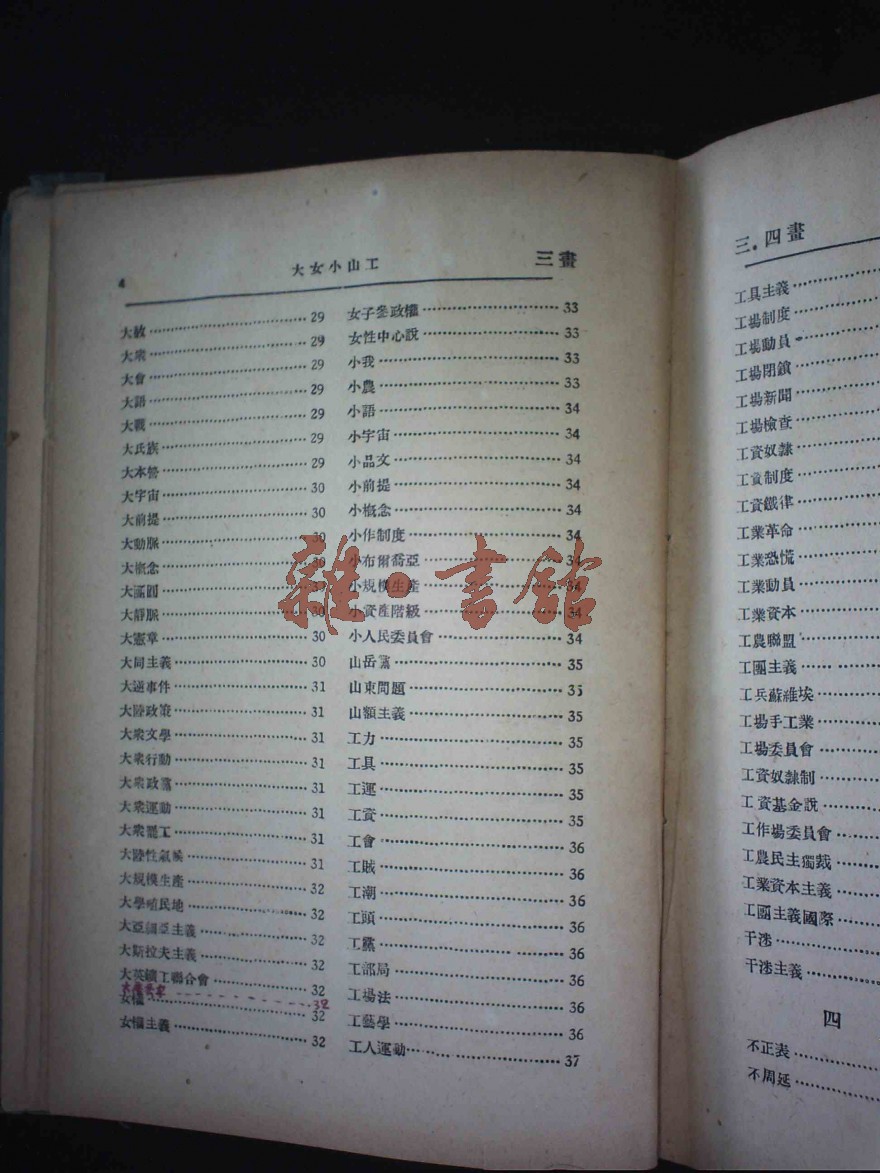 4
大女小山工
三畫
大赦 29
大衆 29
大會 29
大語 29
大戰 29
大氏族 29
大本營 29
大宇宙 30
大前提 30
大動脈 30
大概念 30
大滿圓
大靜脈 30
大憲章 30
大同主義 30
大逆事件 31
大陸政策 31
大衆文學 31
大衆行動 31
大衆政黨 31
大衆運動 31
大衆罷工 31
大陸性氣候 31
大規模生產 32
大學殖民地 32
大亞細亞主義 32
大斯拉夫主義 32
大英鑛工聯合會 32
32
女權 32
女權主義 32
女子參政權 33
女性中心說 33
小我 33
小農 33
小語 34
小宇宙 34
小品文 34
小前提 34
小概念 34
小作制度 34
小布爾喬亞 34
小規模生產 34
小資產階級 34
小人民委員會 34
山岳黨 35
山東問題 35
山額主義 35
工力 35
工具 35
工運 35
工資 35
工會 36
工賊 36
工潮 36
工頭 36
工黨 36
工部局 36
工場法 36
工藝學 36
工人運動 37
雜·書館
三.四畫
工具主義
工場制度
工場動員
工場閉鎖
工場新聞
工場檢查
工資奴隷
工資制度
工資鐵律
工業革命
工業恐慌
工業動員
工業資本
工農聯盟
工團主義
工兵蘇維埃
工場手工業
工場委員會
工資奴隷制
工資基金說
工作場委員會
工農民主獨裁
工業資本主義
工團主義國際
干涉
干涉主義
四
不正表
不周延